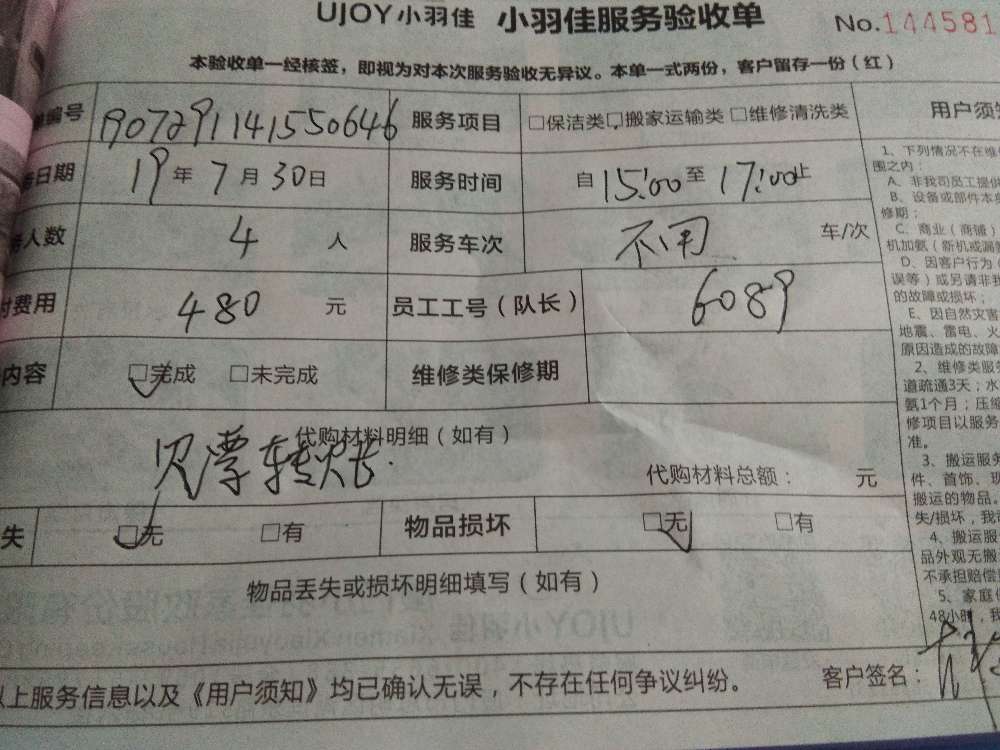 UJOY小羽佳 小羽佳服务验收单 No.144581
本验收单一经核签，即视为对本次服务验收无异议。本单一式两份，客户留存一份（红）
编号 1907291141550646 服务项目 □保洁类□搬家运输类 □维修清洗类 用户须知
日期 19年7月30日 服务时间 自15:00至17:00止
人数 4 人 服务车次 不用 车/次
费用 480 元 员工工号（队长） 6089
内容 □完成 □未完成 维修类保修期
代购材料明细（如有）
转账
代购材料总额： 元
失 □无 □有 物品损坏 □无 □有
物品丢失或损坏明细填写（如有）
以上服务信息以及《用户须知》均已确认无误，不存在任何争议纠纷。
客户签名：
1、下列情况不在维
围之内：
A、非我司员工提供
B、设备或部件本身
修期；
C、商业（商铺）
机加氨（新机或漏
D、因客户行为（
误等）或另请非我
的故障或损坏；
E、因自然灾害
地震、雷电、火
原因造成的故障
2、维修类服务
道疏通3天；水
氨1个月；压缩
修项目以服务
准。
3、搬运服务
件、首饰、现
搬运的物品。
失/损坏，我
4、搬运服
品外观无搬
不承担赔偿
5、家庭
48小时，我